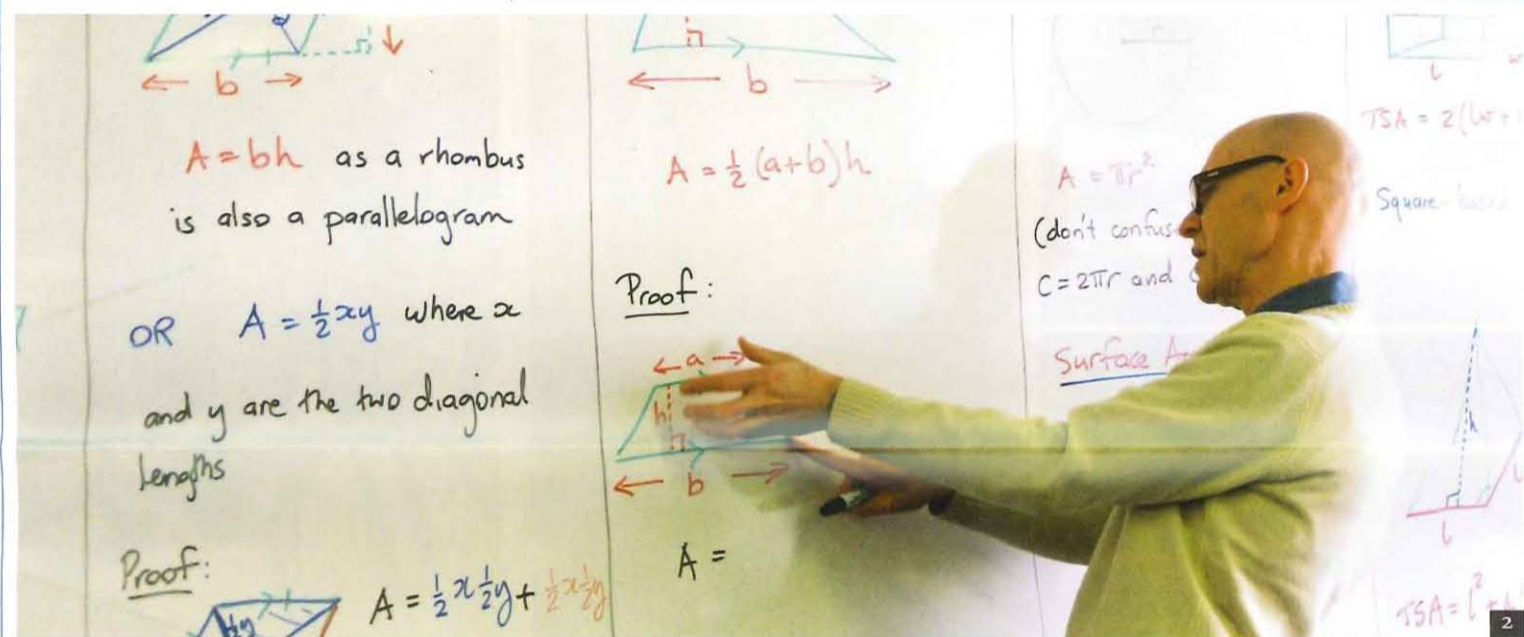 b
A = bh as a rhombus
is also a parallelogram
OR A = ½xy where x
and y are the two diagonal
lengths
Proof:
½y
A = ½x½y + ½x½y
h
b
A = ½(a+b)h
Proof:
a
h
b
A =
A = πr²
(don't confus
C = 2πr and
Surface A
l
TSA = 2(lw +
Square-based
h
l
TSA = l² +
2